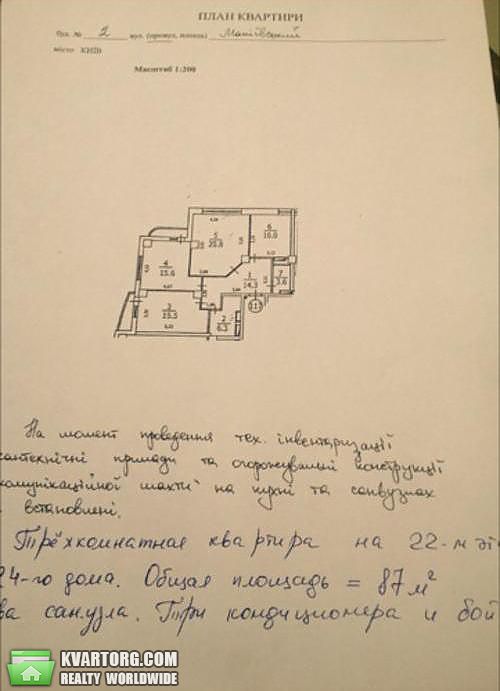 ПЛАН КВАРТИРИ
Буд. № 2 вул. (провул, площа)
місто КИЇВ
Масштаб 1:200
5
6
4
15.6
1
14.5
7
3.6
3
2
6.5
На момент проведення тех. інвентаризації
сантехнічні прилади та огороджувальні конструкції
комунікаційної шахти на кухні та санвузлах
встановлені.
Трёхкомнатная квартира на 22-м эт
24-го дома. Общая площадь = 87 м²
ва санузла. Три кондиционера и бой
KVARTORG.COM
REALTY WORLDWIDE